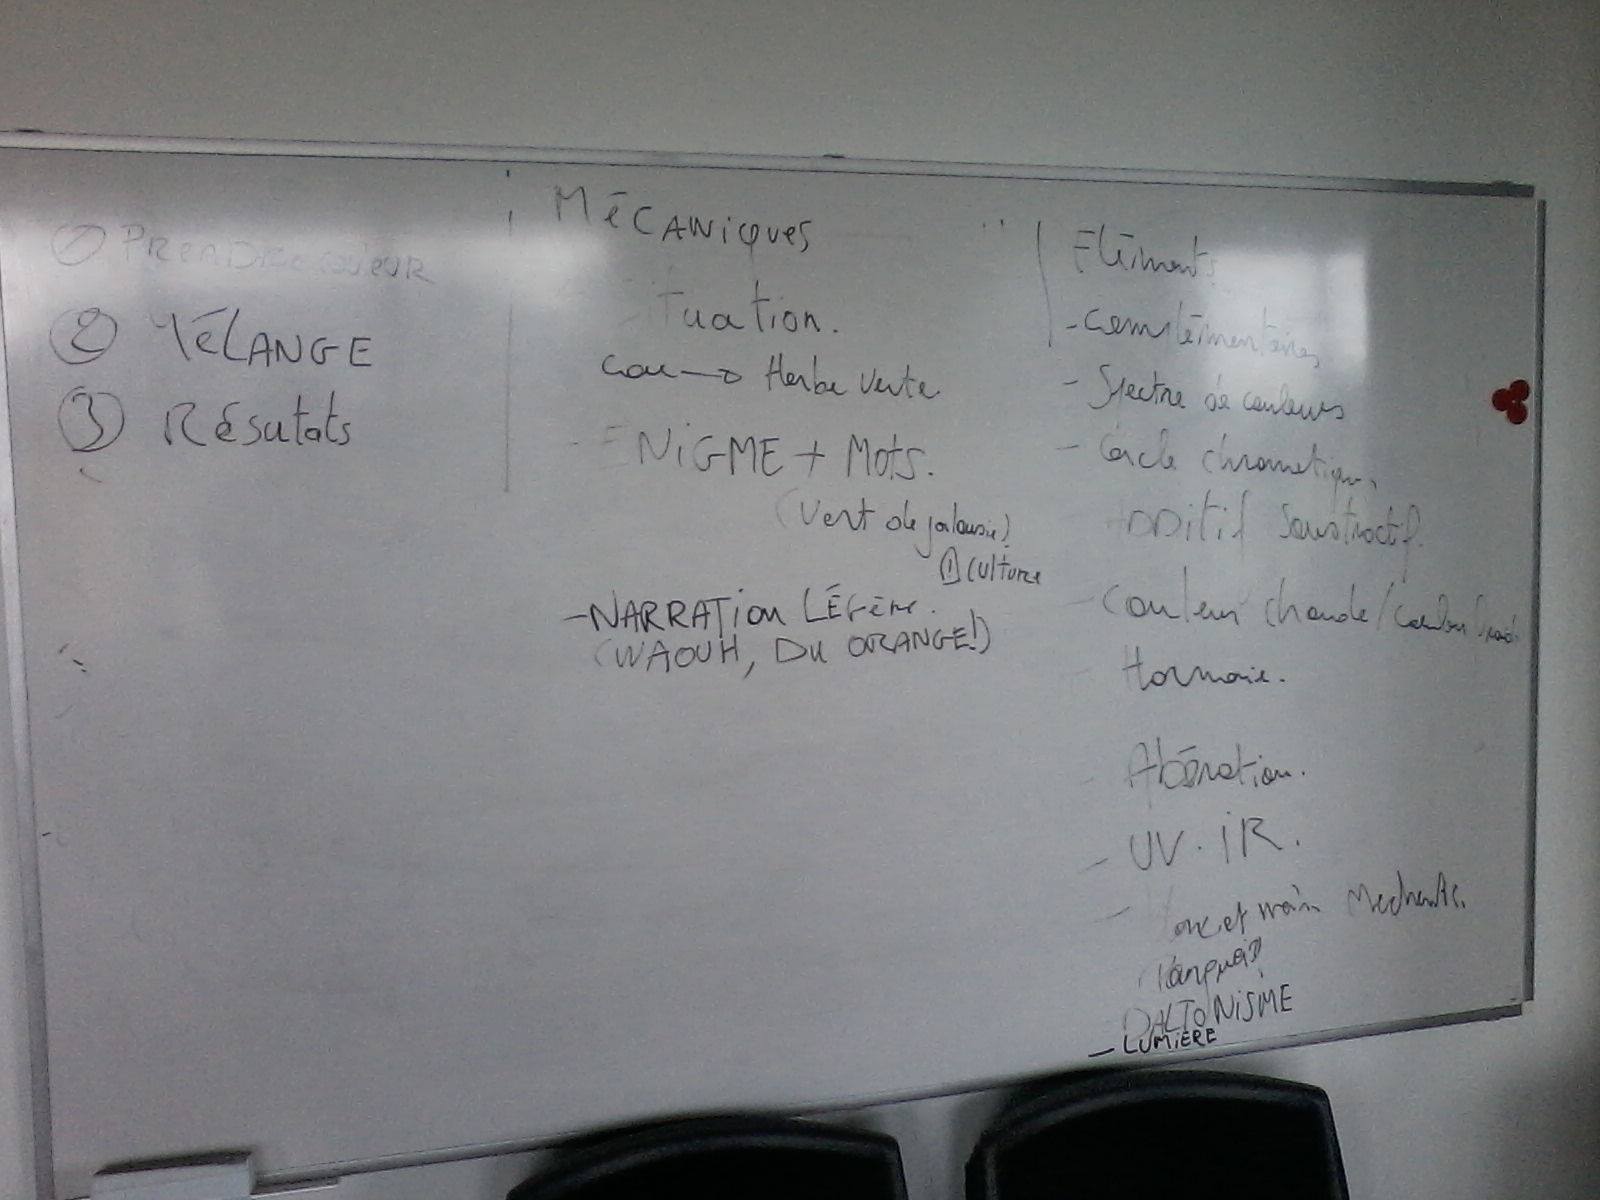 ① PRENDRE COULEUR
② MÉLANGE
③ Résutats
MÉCANIQUES
Situation.
→ Herbe verte
- ENIGME + Mots.
(Vert de jalousie)
① culture
- NARRATION LÉGÈRE.
(WAOUH, DU ORANGE!)
Eléments
- Complémentaires
- Spectre de couleurs
- Cercle chromatique
- ADDitif Soustractif.
- Couleur chaude/
- Harmonie.
- Abération.
- UV. IR.
- DALTONISME
- LUMIERE